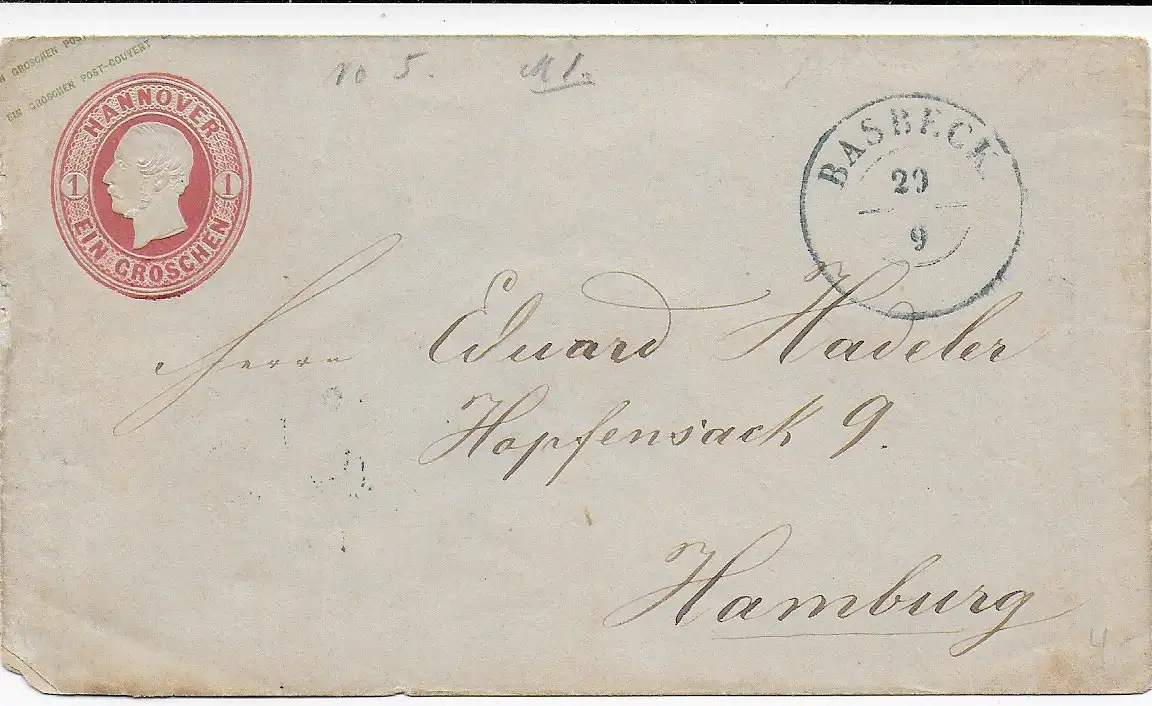 N GROSCHEN POST
EIN GROSCHEN POST-COUVERT
HANNOVER
1 1
EIN GROSCHEN
No 5.
BASBECK
29
9
Herrn Eduard Hadeler
Hopfensack 9.
Hamburg